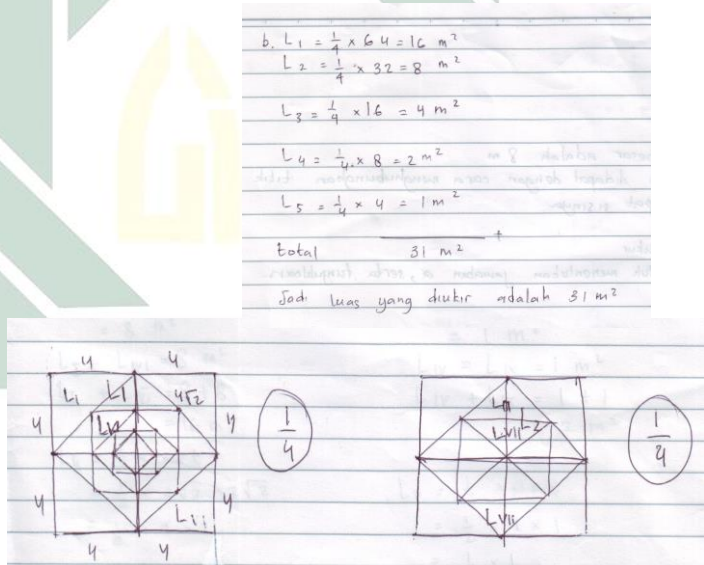 b. L1 = 1/4 × 64 = 16 m²
L2 = 1/4 × 32 = 8 m²
L3 = 1/4 × 16 = 4 m²
L4 = 1/4 × 8 = 2 m²
L5 = 1/4 × 4 = 1 m²
+
total 31 m²
Jadi luas yang diukir adalah 31 m²
4 4
L1 LI 4√2
4 4
1/4
4 4
4 4
LVII
LVII
1/4